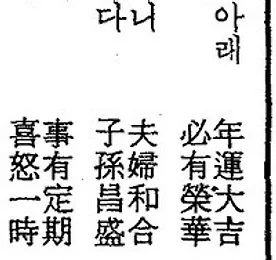 아래
니
다
年運大吉
必有榮華
夫婦和合
子孫昌盛
事有定期
喜怒一時